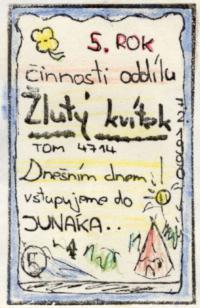 5. ROK
činnosti oddílu
Žlutý kvítek
TOM 4714
Dnešním dnem
vstupujeme do
JUNÁKA..
5